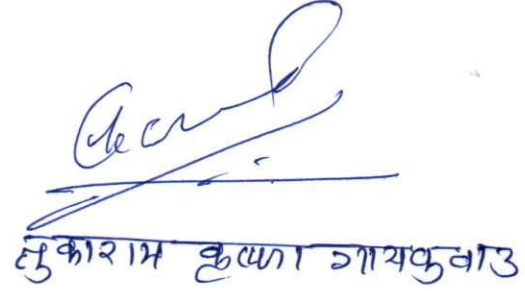 तुकाराम कृष्णा गायकवाड